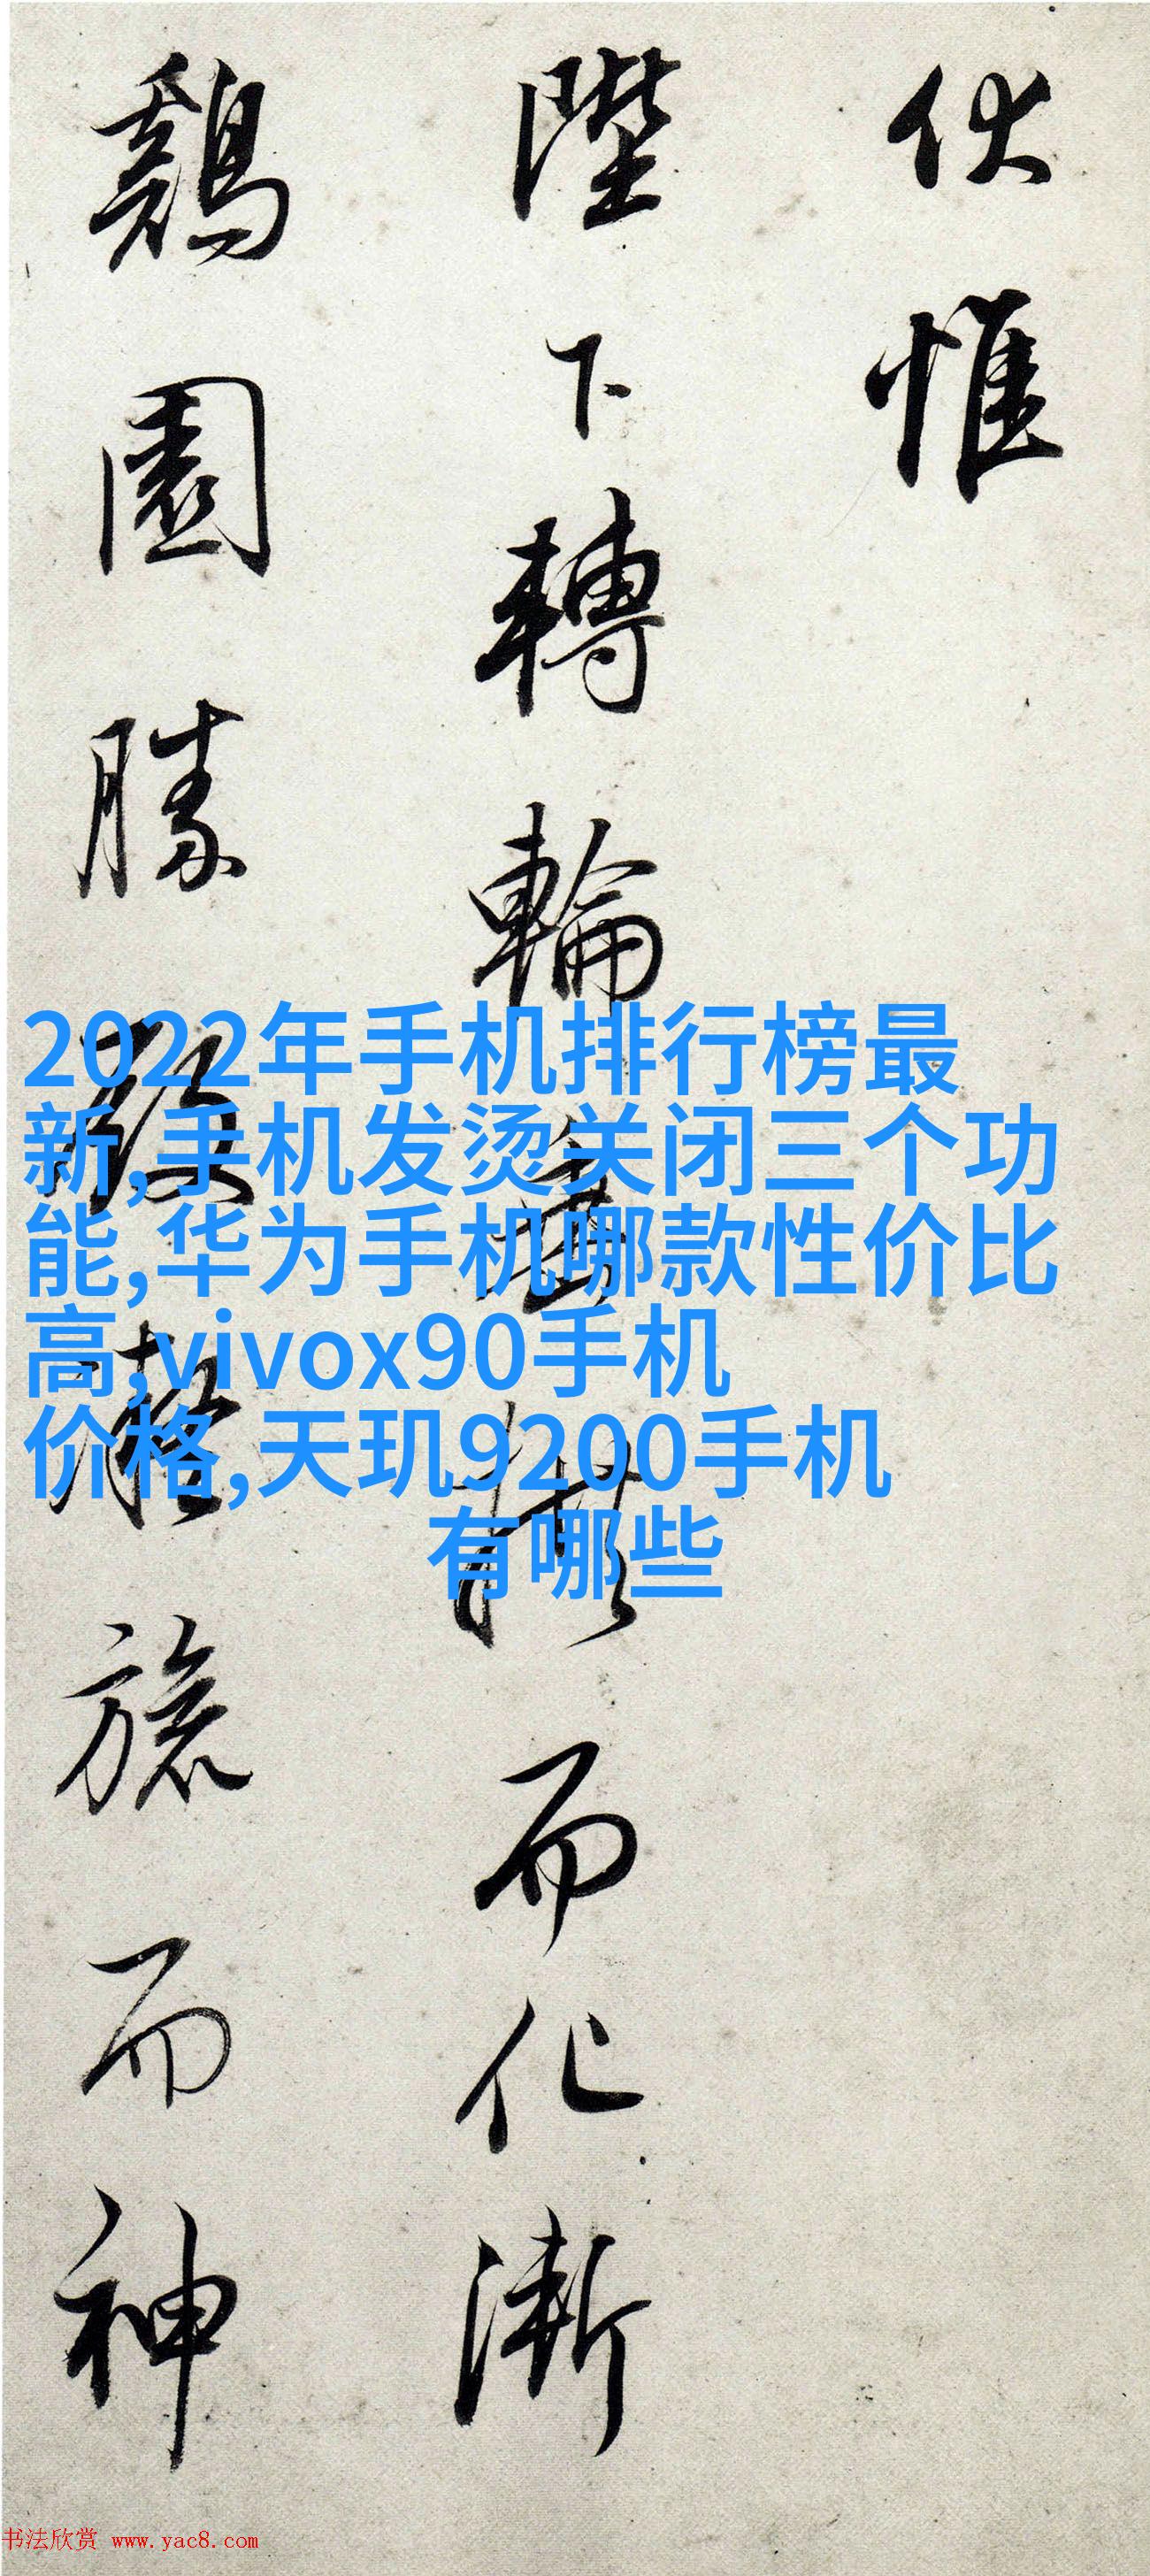 伏惟
陛下轉輪
而化漸
鷄園勝
旅而神
2022年手机排行榜最
新,手机发烫关闭三个功
能,华为手机哪款性价比
高,vivox90手机
价格,天玑9200手机
有哪些
书法欣赏 www.yac8.com